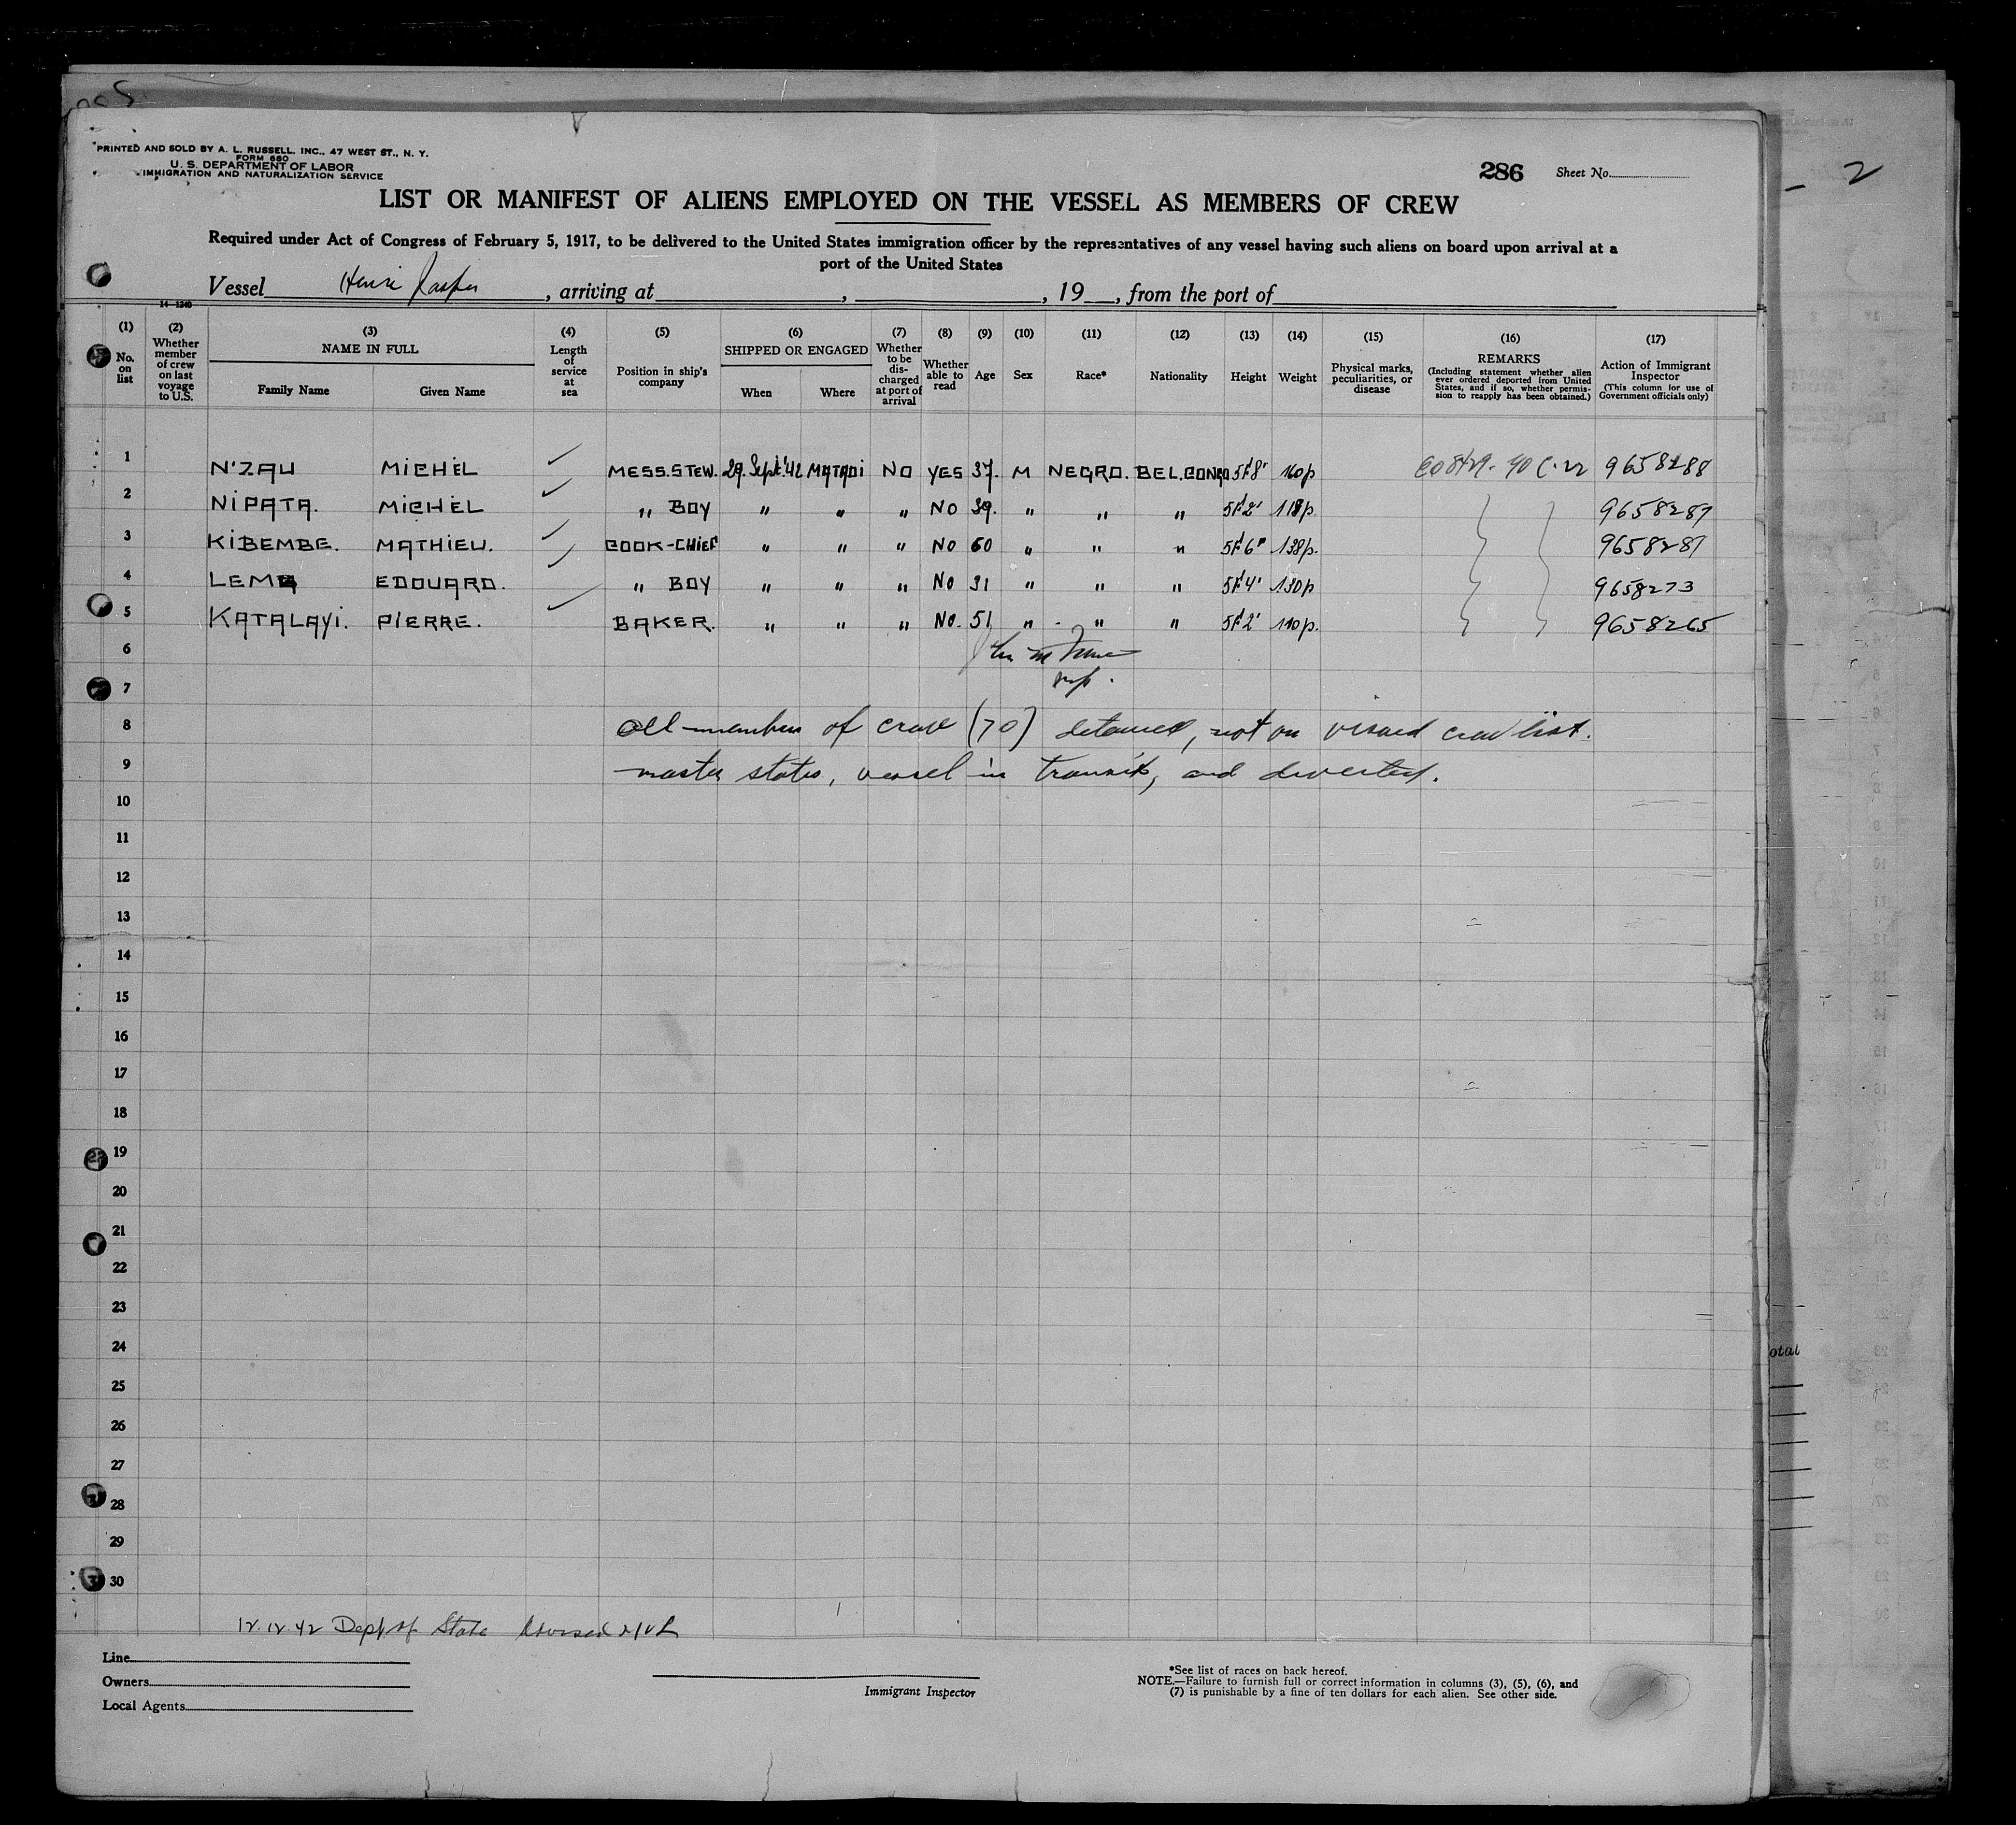 PRINTED AND SOLD BY A. L. RUSSELL, INC., 47 WEST ST., N. Y.
FORM 680
U. S. DEPARTMENT OF LABOR
IMMIGRATION AND NATURALIZATION SERVICE
286 Sheet No.
- 2
LIST OR MANIFEST OF ALIENS EMPLOYED ON THE VESSEL AS MEMBERS OF CREW
Required under Act of Congress of February 5, 1917, to be delivered to the United States immigration officer by the representatives of any vessel having such aliens on board upon arrival at a
port of the United States
Vessel Henri Jaspar, arriving at , , 19 , from the port of
14-1240
(1) No. on list
(2) Whether member of crew on last voyage to U.S.
(3) NAME IN FULL Family Name Given Name
(4) Length of service at sea
(5) Position in ship's company
(6) SHIPPED OR ENGAGED When Where
(7) Whether to be discharged at port of arrival
(8) Whether able to read
(9) Age
(10) Sex
(11) Race*
(12) Nationality
(13) Height
(14) Weight
(15) Physical marks, peculiarities, or disease
(16) REMARKS (Including statement whether alien ever ordered deported from United States, and if so, whether permission to reapply has been obtained.)
(17) Action of Immigrant Inspector (This column for use of Government officials only)
1 N'ZAU MICHEL MESS.STEW. 29. Sept. '42 MATADI NO YES 37. M NEGRO. BEL.CONGO 5f 8" 160p 9658288
2 NIPATA. MICHEL " BOY " " " NO 39. " " " 5f 2' 118p. 9658287
3 KIBEMBE. MATHIEU. COOK-CHIEF " " " NO 60 " " " 5f 6" 138p. 9658281
4 LEMA EDOUARD. " BOY " " " NO 31 " " " 5f 4' 130p 9658273
5 KATALAYI. PIERRE. BAKER. " " " NO. 51 " " " 5f 2' 110p. 9658265
6
7
8 All members of crew (70) detained, not on visaed crew list.
9 master states, vessel in transit, and diverted.
10
11
12
13
14
15
16
17
18
19
20
21
22
23
24
25
26
27
28
29
30
12.12.42 Dept of State Advised
Line
Owners
Local Agents
Immigrant Inspector
*See list of races on back hereof.
NOTE.—Failure to furnish full or correct information in columns (3), (5), (6), and
(7) is punishable by a fine of ten dollars for each alien. See other side.
otal